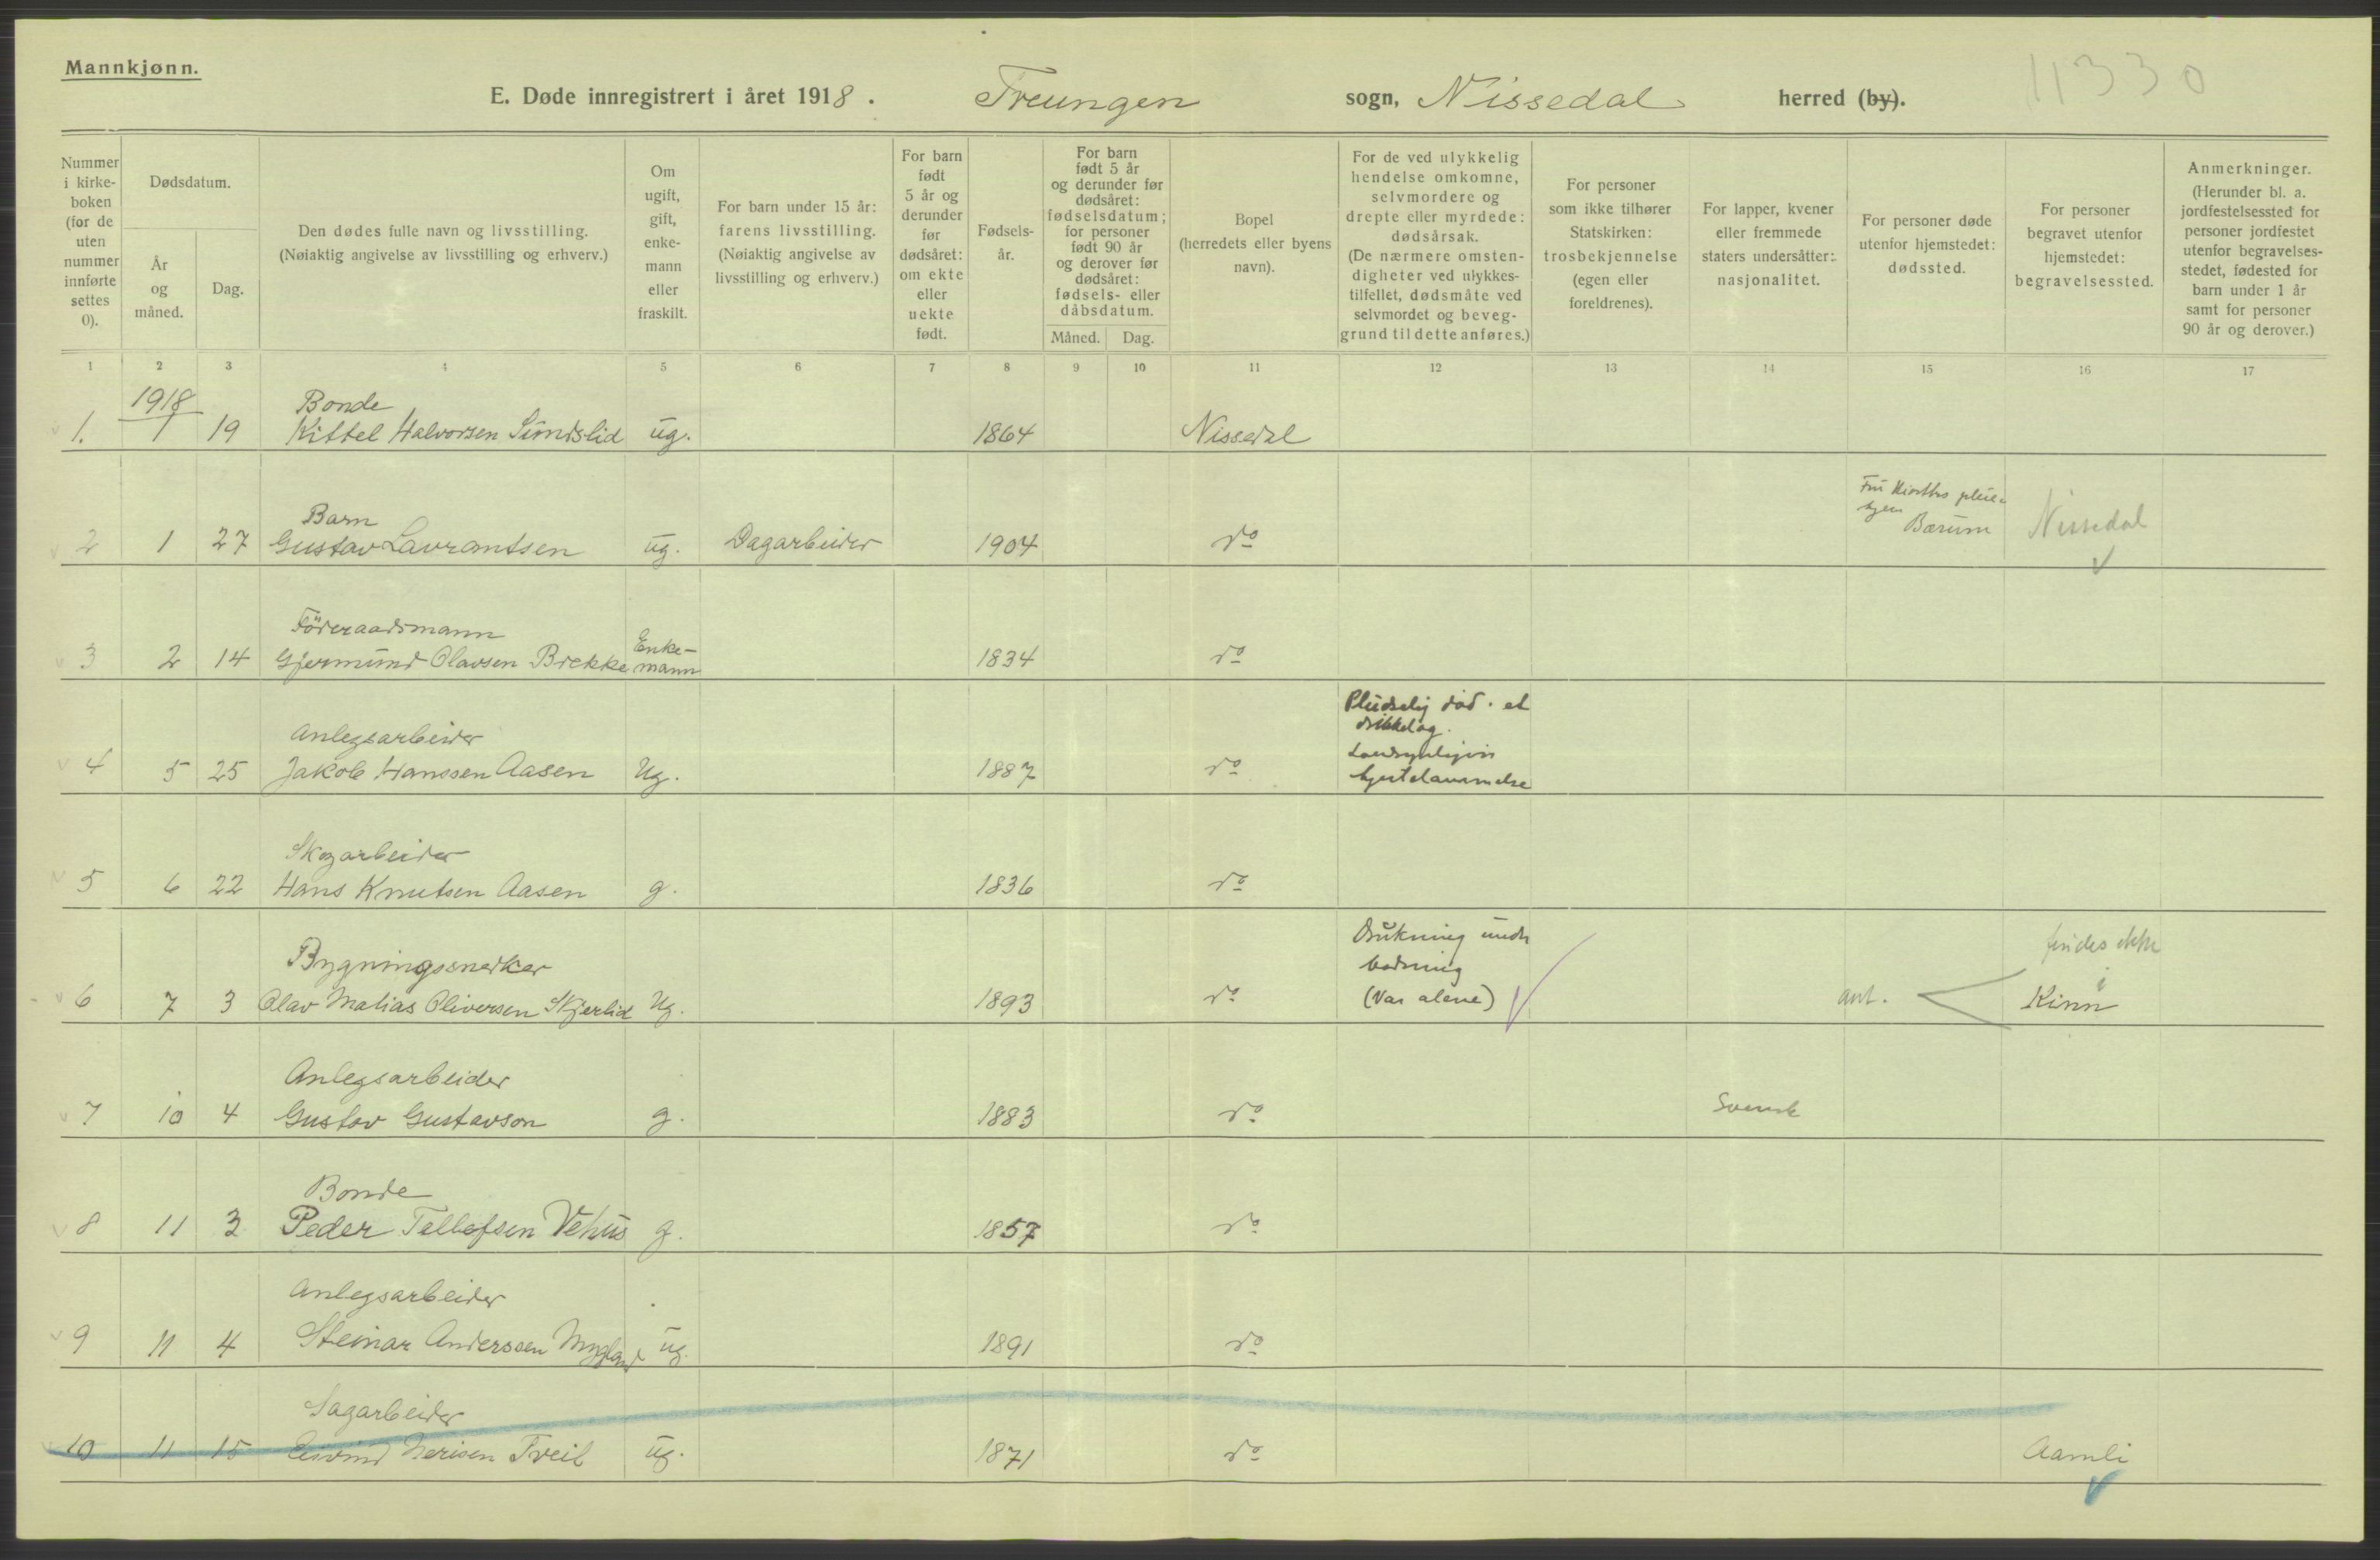 Mannkjønn.
E. Døde innregistrert i året 1918. Treungen sogn, Nissedal herred (by).
11330
Nummer i kirke- boken (for de uten nummer innførte settes 0).
Dødsdatum.
År og måned.
Dag.
Den dødes fulle navn og livsstilling.
(Nøiaktig angivelse av livsstilling og erhverv.)
Om ugift, gift, enke- mann eller fraskilt.
For barn under 15 år: farens livsstilling. (Nøiaktig angivelse av livsstilling og erhverv.)
For barn født 5 år og derunder før dødsåret: om ekte eller uekte født.
Fødsels- år.
For barn født 5 år og derunder før dødsåret: fødselsdatum; for personer født 90 år og derover før dødsåret: fødsels- eller dåbsdatum.
Måned. Dag.
Bopel (herredets eller byens navn).
For de ved ulykkelig hendelse omkomne, selvmordere og drepte eller myrdede: dødsårsak. (De nærmere omsten- digheter ved ulykkes- tilfellet, dødsmåte ved selvmordet og beveg- grund til dette anføres.)
For personer som ikke tilhører Statskirken: trosbekjennelse (egen eller foreldrenes).
For lapper, kvener eller fremmede staters undersåtter: nasjonalitet.
For personer døde utenfor hjemstedet: dødssted.
For personer begravet utenfor hjemstedet: begravelsessted.
Anmerkninger. (Herunder bl. a. jordfestelsessted for personer jordfestet utenfor begravelses- stedet, fødested for barn under 1 år samt for personer 90 år og derover.)
1 2 3 4 5 6 7 8 9 10 11 12 13 14 15 16 17
1918 Bonde
1. 1 19 Kittel Halvorsen Sundslid ug. 1864 Nissedal
Barn
2 1 27 Gustav Lavrantsen ug. Dagarbeider 1904 do Bærum Nissedal
Föderaadsmann
3 2 14 Gjermund Olavsen Brekke Enke- mann 1834 do
Anlegsarbeider
4 5 25 Jakob Hanssen Aasen Ug. 1887 do
Pludselig död. et
drikkelag.
Sandsynligvis
hjertelammelse
Skogarbeider
5 6 22 Hans Knutsen Aasen g. 1836 do
Bygningssnedker
6 7 3 Olav Matias Oliversen Skjerlid Ug. 1893 do
Drukning under
badning
(Var alene)
ant.
findes ikke
i
Kinn
Anlegsarbeider
7 10 4 Gustav Gustavson g. 1883 do Svensk
Bonde
8 11 3 Peder Tellefsen Vehus g. 1857 do
Anlegsarbeider
9 11 4 Steinar Anderssen Mygland ug. 1891 do
Sagarbeider
10 11 15 Eivind Nerisen Tveit ug. 1871 do Aamli